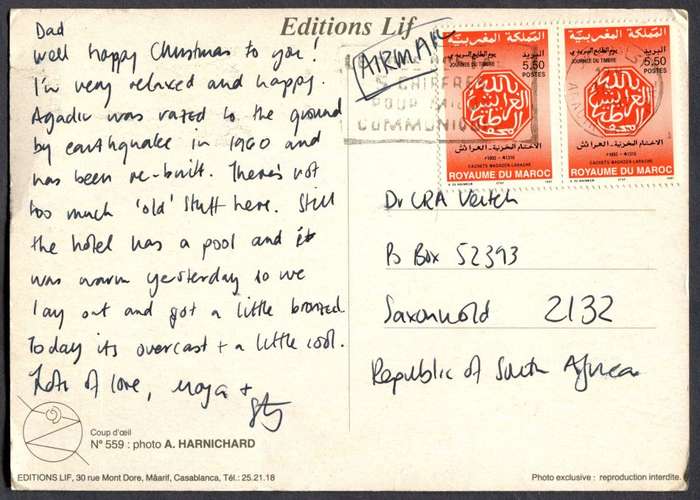 Editions Lif
Dad
Well happy Christmas to you!
I'm very relaxed and happy.
Agadir was razed to the ground
by earthquake in 1960 and
has been re-built. There's not
too much 'old' stuff here. Still
the hotel has a pool and it
was warm yesterday so we
lay out and got a little bronzed.
Today its overcast + a little cool.
Lots of love, Moya +
AIRMAIL
5 CHIFFRES
POUR MIEUX
COMMUNIQUER
المملكة المغربية
البريد
يوم الطابع البريدي
5,50
JOURNEE DU TIMBRE
POSTES
الأختام المخزنية - العرائش
CACHETS MAGHZEN-LARACHE
ROYAUME DU MAROC
المملكة المغربية
البريد
يوم الطابع البريدي
5,50
JOURNEE DU TIMBRE
POSTES
الأختام المخزنية - العرائش
CACHETS MAGHZEN-LARACHE
ROYAUME DU MAROC
Dr CRA Veitch
Po Box 52393
Saxonwold 2132
Republic of South Africa
Coup d'œil
N° 559 : photo A. HARNICHARD
EDITIONS LIF, 30 rue Mont Dore, Mâarif, Casablanca, Tél.: 25.21.18
Photo exclusive : reproduction interdite.